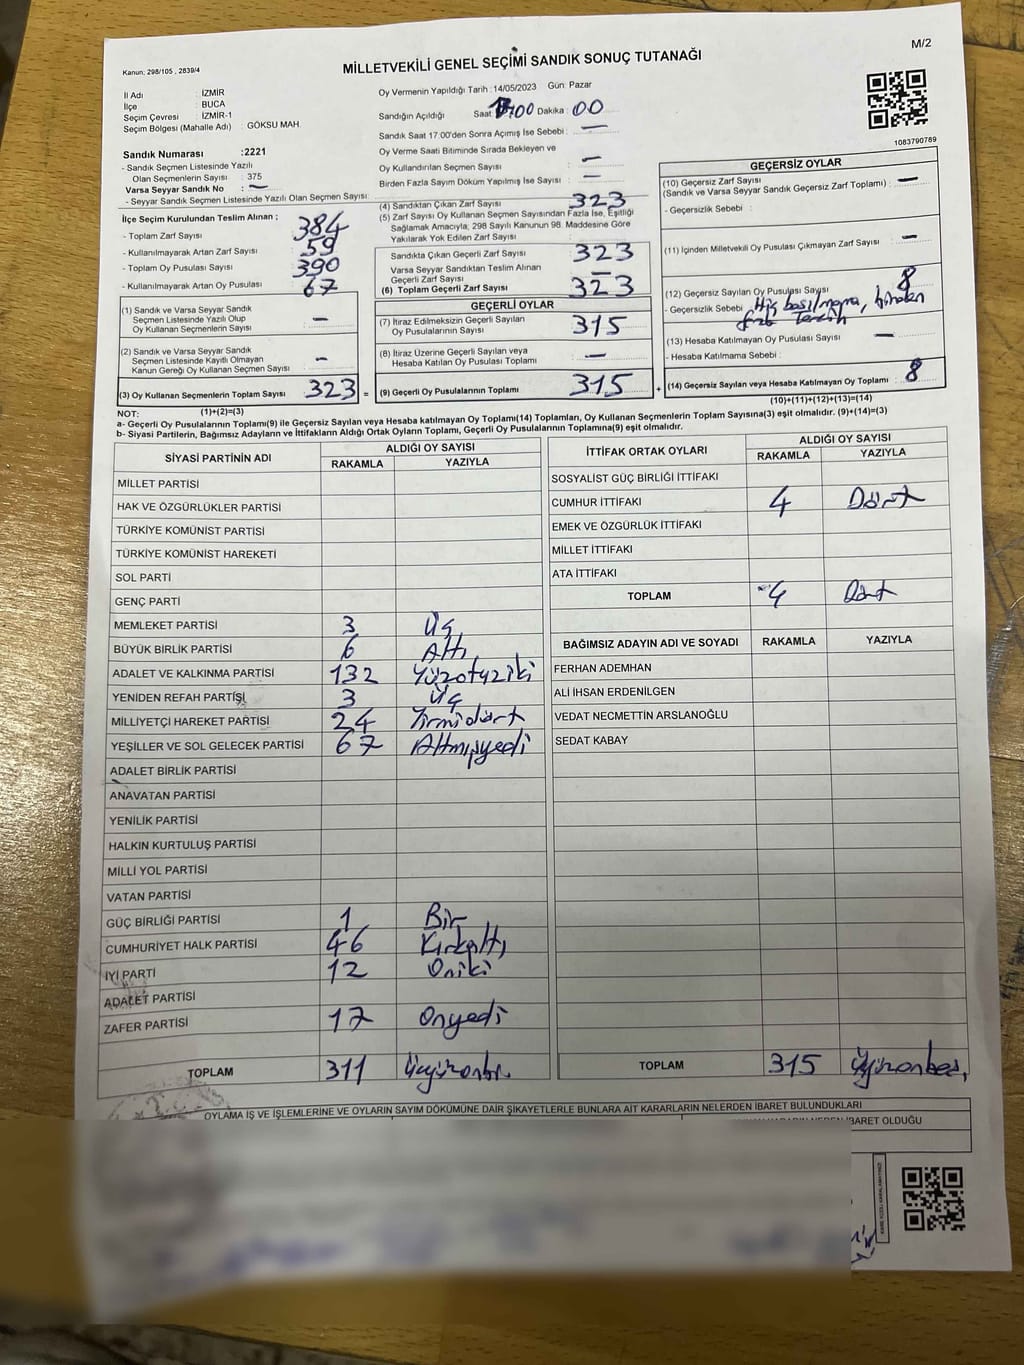 M/2
Kanun: 298/105 , 2839/4
MİLLETVEKİLİ GENEL SEÇİMİ SANDIK SONUÇ TUTANAĞI
İl Adı : İZMİR
İlçe : BUCA
Seçim Çevresi : İZMİR-1
Seçim Bölgesi (Mahalle Adı) : GÖKSU MAH.
Sandık Numarası : 2221
- Sandık Seçmen Listesinde Yazılı
Olan Seçmenlerin Sayısı : 375
Varsa Seyyar Sandık No : —
- Seyyar Sandık Seçmen Listesinde Yazılı Olan Seçmen Sayısı:
Oy Vermenin Yapıldığı Tarih : 14/05/2023 Gün: Pazar
Sandığın Açıldığı Saat 17:00 Dakika : 00
Sandık Saat 17.00'den Sonra Açımış İse Sebebi : —
Oy Verme Saati Bitiminde Sırada Bekleyen ve
Oy Kullandırılan Seçmen Sayısı : —
Birden Fazla Sayım Döküm Yapılmış İse Sayısı : —
1083790789
İlçe Seçim Kurulundan Teslim Alınan ;
- Toplam Zarf Sayısı 384
- Kullanılmayarak Artan Zarf Sayısı 59
- Toplam Oy Pusulası Sayısı 390
- Kullanılmayarak Artan Oy Pusulası 67
(1) Sandık ve Varsa Seyyar Sandık
Seçmen Listesinde Yazılı Olup
Oy Kullanan Seçmenlerin Sayısı : —
(2) Sandık ve Varsa Seyyar Sandık
Seçmen Listesinde Kayıtlı Olmayan
Kanun Gereği Oy Kullanan Seçmen Sayısı : —
(3) Oy Kullanan Seçmenlerin Toplam Sayısı 323 =
(4) Sandıktan Çıkan Zarf Sayısı 323
(5) Zarf Sayısı Oy Kullanan Seçmen Sayısından Fazla İse, Eşitliği
Sağlamak Amacıyla, 298 Sayılı Kanunun 98. Maddesine Göre
Yakılarak Yok Edilen Zarf Sayısı :
Sandıkta Çıkan Geçerli Zarf Sayısı 323
Varsa Seyyar Sandıktan Teslim Alınan
Geçerli Zarf Sayısı —
(6) Toplam Geçerli Zarf Sayısı 323
GEÇERLİ OYLAR
(7) İtiraz Edilmeksizin Geçerli Sayılan
Oy Pusulalarının Sayısı 315
(8) İtiraz Üzerine Geçerli Sayılan veya
Hesaba Katılan Oy Pusulası Toplamı —
(9) Geçerli Oy Pusulalarının Toplamı 315 +
GEÇERSİZ OYLAR
(10) Geçersiz Zarf Sayısı —
(Sandık ve Varsa Seyyar Sandık Geçersiz Zarf Toplamı) :
- Geçersizlik Sebebi :
(11) İçinden Milletvekili Oy Pusulası Çıkmayan Zarf Sayısı —
(12) Geçersiz Sayılan Oy Pusulası Sayısı 8
- Geçersizlik Sebebi : Hiç basılmama, birden
fazla Tercih
(13) Hesaba Katılmayan Oy Pusulası Sayısı —
- Hesaba Katılmama Sebebi :
(14) Geçersiz Sayılan veya Hesaba Katılmayan Oy Toplamı 8
(10)+(11)+(12)+(13)=(14)
NOT: (1)+(2)=(3)
a- Geçerli Oy Pusulalarının Toplamı(9) ile Geçersiz Sayılan veya Hesaba Katılmayan Oy Toplamı(14) Toplamları, Oy Kullanan Seçmenlerin Toplam Sayısına(3) eşit olmalıdır. (9)+(14)=(3)
b- Siyasi Partilerin, Bağımsız Adayların ve İttifakların Aldığı Ortak Oyların Toplamı, Geçerli Oy Pusulalarının Toplamına(9) eşit olmalıdır.
SİYASİ PARTİNİN ADI ALDIĞI OY SAYISI
RAKAMLA YAZIYLA
MİLLET PARTİSİ
HAK VE ÖZGÜRLÜKLER PARTİSİ
TÜRKİYE KOMÜNİST PARTİSİ
TÜRKİYE KOMÜNİST HAREKETİ
SOL PARTİ
GENÇ PARTİ
MEMLEKET PARTİSİ 3 Üç
BÜYÜK BİRLİK PARTİSİ 6 Altı
ADALET VE KALKINMA PARTİSİ 132 Yüzotuziki
YENİDEN REFAH PARTİSİ 3 Üç
MİLLİYETÇİ HAREKET PARTİSİ 24 Yirmidört
YEŞİLLER VE SOL GELECEK PARTİSİ 67 Altmışyedi
ADALET BİRLİK PARTİSİ
ANAVATAN PARTİSİ
YENİLİK PARTİSİ
HALKIN KURTULUŞ PARTİSİ
MİLLİ YOL PARTİSİ
VATAN PARTİSİ
GÜÇ BİRLİĞİ PARTİSİ 1 Bir
CUMHURİYET HALK PARTİSİ 46 Kırkaltı
İYİ PARTİ 12 Oniki
ADALET PARTİSİ
ZAFER PARTİSİ 17 Onyedi
TOPLAM 311 Üçyüzonbir
İTTİFAK ORTAK OYLARI ALDIĞI OY SAYISI
RAKAMLA YAZIYLA
SOSYALİST GÜÇ BİRLİĞİ İTTİFAKI
CUMHUR İTTİFAKI 4 Dört
EMEK VE ÖZGÜRLÜK İTTİFAKI
MİLLET İTTİFAKI
ATA İTTİFAKI
TOPLAM 4 Dört
BAĞIMSIZ ADAYIN ADI VE SOYADI RAKAMLA YAZIYLA
FERHAN ADEMHAN
ALİ İHSAN ERDENİLGEN
VEDAT NECMETTİN ARSLANOĞLU
SEDAT KABAY
TOPLAM 315 Üçyüzonbeş
OYLAMA İŞ VE İŞLEMLERİNE VE OYLARIN SAYIM DÖKÜMÜNE DAİR ŞİKAYETLERLE BUNLARA AİT KARARLARIN NELERDEN İBARET BULUNDUKLARI
İBARET OLDUĞU